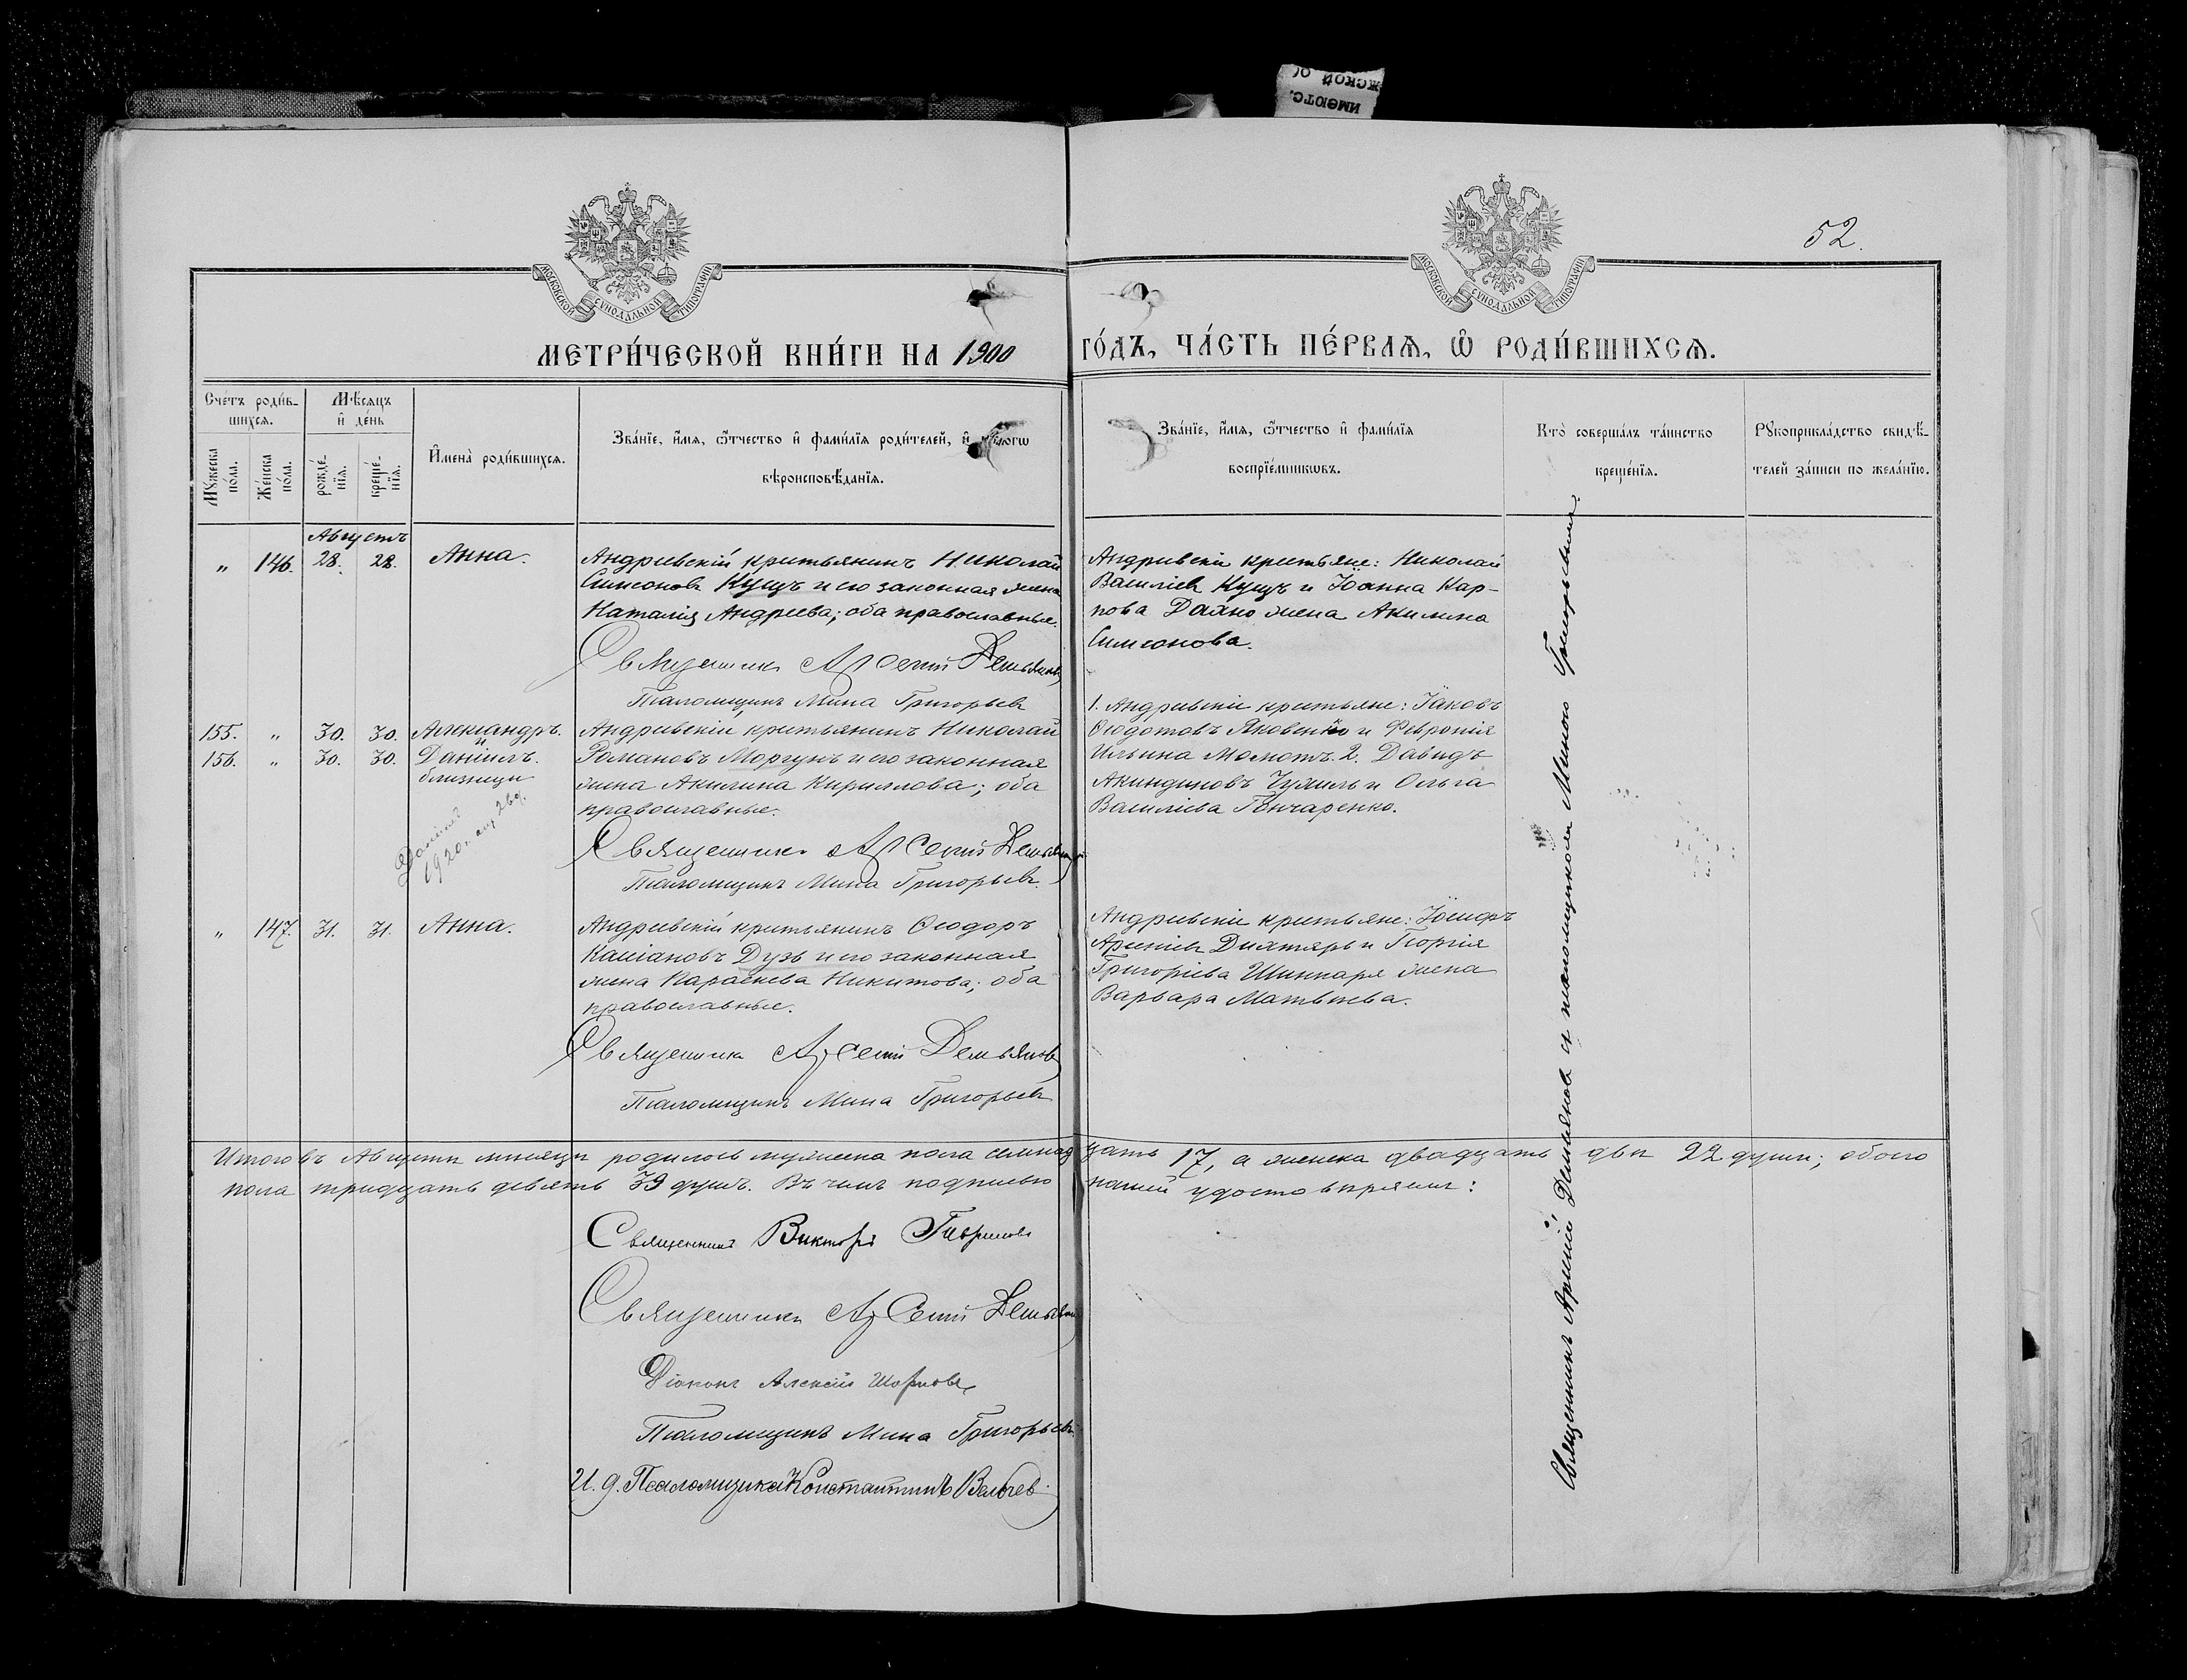 52.
МОСКОВСКОЙ СѴНОДАЛЬНОЙ ТИПОГРАФІИ
МОСКОВСКОЙ СѴНОДАЛЬНОЙ ТИПОГРАФІИ
МЕТРИ́ЧЕСКОЙ КНИ́ГИ НА 1900
ГО́ДЪ, ЧА́СТЬ ПЕ́РВАѦ, Ѡ҆ РОДИ́ВШИХСѦ.
Сче́тъ роди́в-
шихсѧ.
Мѣ́сѧцъ
и҆ де́нь
Мꙋ́жеска
по́ла.
Же́нска
по́ла.
рожде́-
нїѧ.
креще́-
нїѧ.
И҆мена̀ роди́вшихсѧ.
Зва́нїе, и҆́мѧ, ѻ҆́тчество и҆ фами́лїѧ роди́телей, и҆
вѣроисповѣ́данїѧ.
Зва́нїе, и҆́мѧ, ѻ҆́тчество и҆ фами́лїѧ
воспрїе́мникѡвъ.
Кто̀ соверша́лъ та́инство
креще́нїѧ.
Рꙋкоприкла́дство свидѣ́-
телей за́писи по жела́нїю.
Августъ
„ 146. 28. 28. Анна.
Андреевскій крестьянинъ Николай
Симеоновъ Кущъ и его законная жена
Наталія Андреева; оба православные.
Священникъ Арсеній Демьяновъ
Псаломщикъ Мина Григорьевъ
Андреевскіе крестьяне: Николай
Василіевъ Кущъ и Іоанна Кар-
пова Дахно жена Акилина
Симеонова.
155. „ 30. 30. Александръ.
и
156. „ 30. 30. Даніилъ.
близнецы
1920
Андреевскій крестьянинъ Николай
Романовъ Моргунъ и его законная
жена Акилина Кириллова; оба
православные.
Священникъ Арсеній Демьяновъ
Псаломщикъ Мина Григорьевъ.
1. Андреевскіе крестьяне: Іаковъ
Ѳеодотовъ Яковенко и Февронія
Ильина Момотъ. 2. Давидъ
Акиндиновъ и Ольга
Василіева Гончаренко.
„ 147. 31. 31. Анна.
Андреевскій крестьянинъ Ѳеодоръ
Касіановъ Дузь и его законная
жена Параскева Никитова; оба
православные.
Священникъ Арсеній Демьяновъ
Псаломщикъ Мина Григорьевъ
Андреевскіе крестьяне: Іосифъ
Арсеніевъ Дихтярь и Георгія
Григоріева Шинкаря жена
Варвара Матвѣева.
Священникъ Арсеній Демьяновъ съ псаломщикомъ Миною Григорьевымъ.
Итого въ Августѣ мѣсяцѣ родилось мужеска пола семнадцать 17, а женска двадцать двѣ 22 души; обоего
пола тридцать девять 39 душъ. Въ чемъ подписью нашей удостовѣряемъ:
Священникъ Викторъ Гавриловъ
Священникъ Арсеній Демьяновъ
Діаконъ Алексій
Псаломщикъ Мина Григорьевъ.
И. д. Псаломщика Константинъ